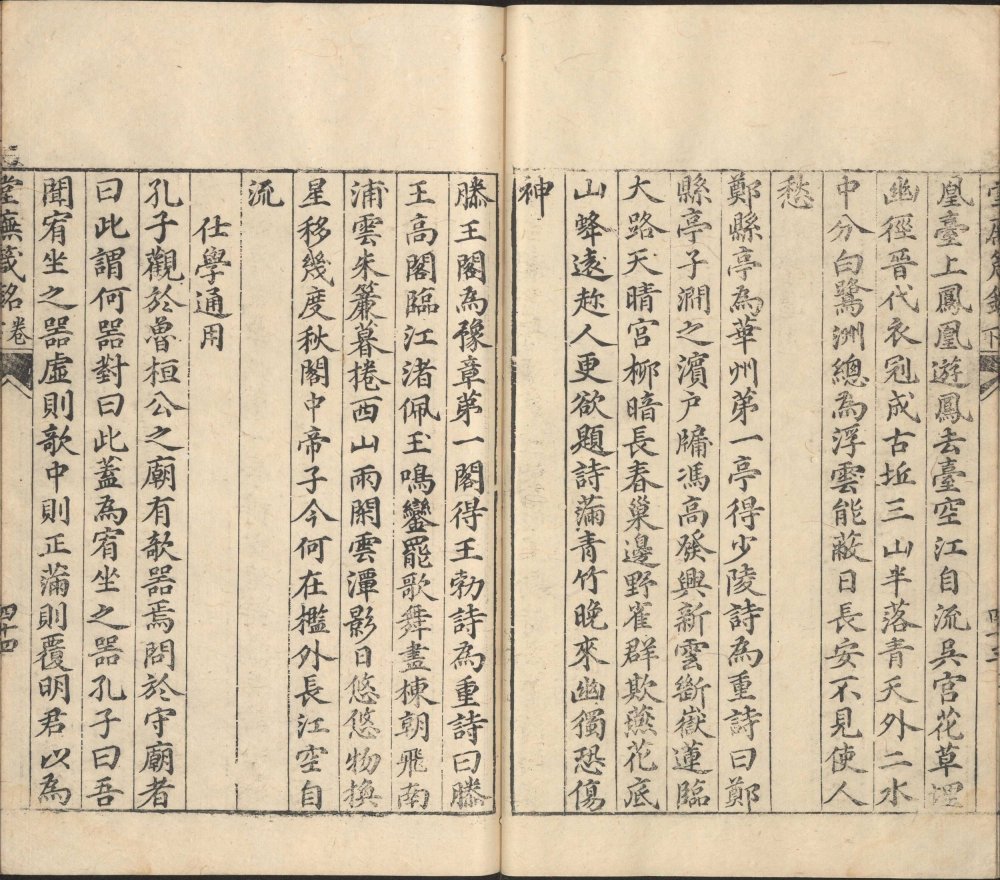 凰臺上鳳凰遊鳳去臺空江自流吳宮花草埋
幽徑晉代衣冠成古坵三山半落青天外二水
中分白鷺洲總為浮雲能蔽日長安不見使人
愁
鄭縣亭為華州第一亭得少陵詩為重詩曰鄭
縣亭子澗之濱户牖馮高發興新雲斷嶽蓮臨
大路天晴宮柳暗長春巢邊野雀群欺燕花底
山蜂遠趂人更欲題詩滿青竹晚來幽獨恐傷
神
滕王閣為豫章第一閣得王勃詩為重詩曰滕
王高閣臨江渚佩玉鳴鑾罷歌舞畫棟朝飛南
浦雲朱簾暮捲西山雨閑雲潭影日悠悠物換
星移幾度秋閣中帝子今何在檻外長江空自
流
仕學通用
孔子觀於魯桓公之廟有欹器焉問於守廟者
曰此謂何器對曰此蓋為宥坐之器孔子曰吾
聞宥坐之器虛則欹中則正滿則覆明君以為
堂廡箴銘卷
四十四